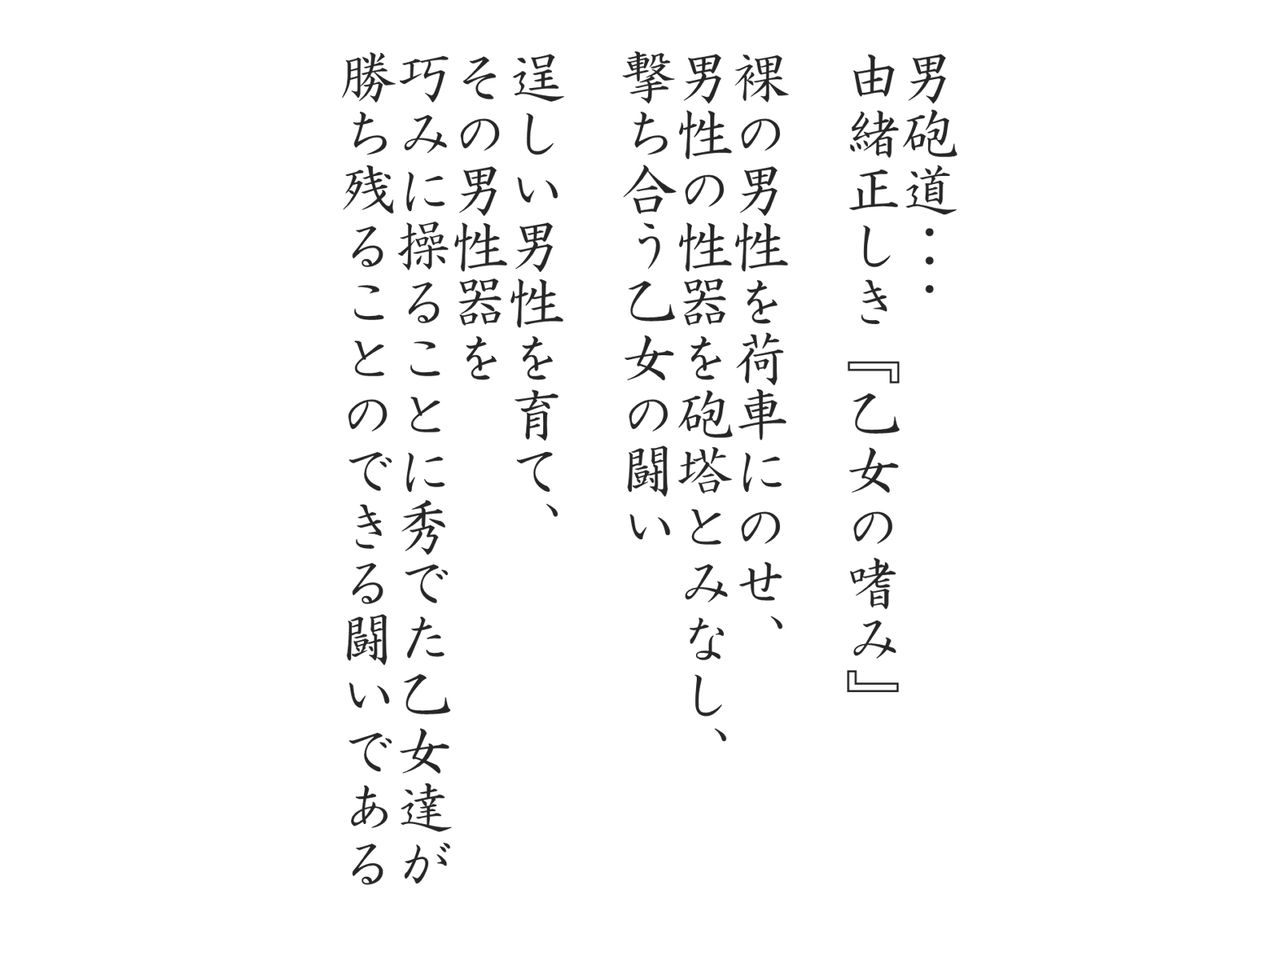 男砲道・・・
由緒正しき『乙女の嗜み』
裸の男性を荷車にのせ、
男性の性器を砲塔とみなし、
撃ち合う乙女の闘い
逞しい男性を育て、
その男性器を
巧みに操ることに秀でた乙女達が
勝ち残ることのできる闘いである